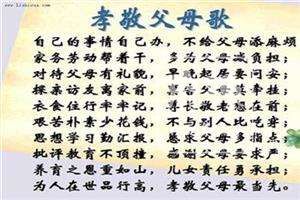 www.lishixin.com
孝敬父母歌
自己的事情自己办，不给父母添麻烦
家务劳动帮着干，多为父母减负担；
对待父母有礼貌，早晚起居要问安；
探亲访友离家前，禀告父母莫牵挂；
衣食住行牢牢记，尊长敬老想在前；
艰苦朴素少花钱，不与别人比吃穿；
思想学习勤汇报，恳求父母多指点；
批评教育不顶撞，感谢父母要求严；
养育之恩重如山，儿女责任勇承担；
为人在世品行高，孝敬父母最当先。